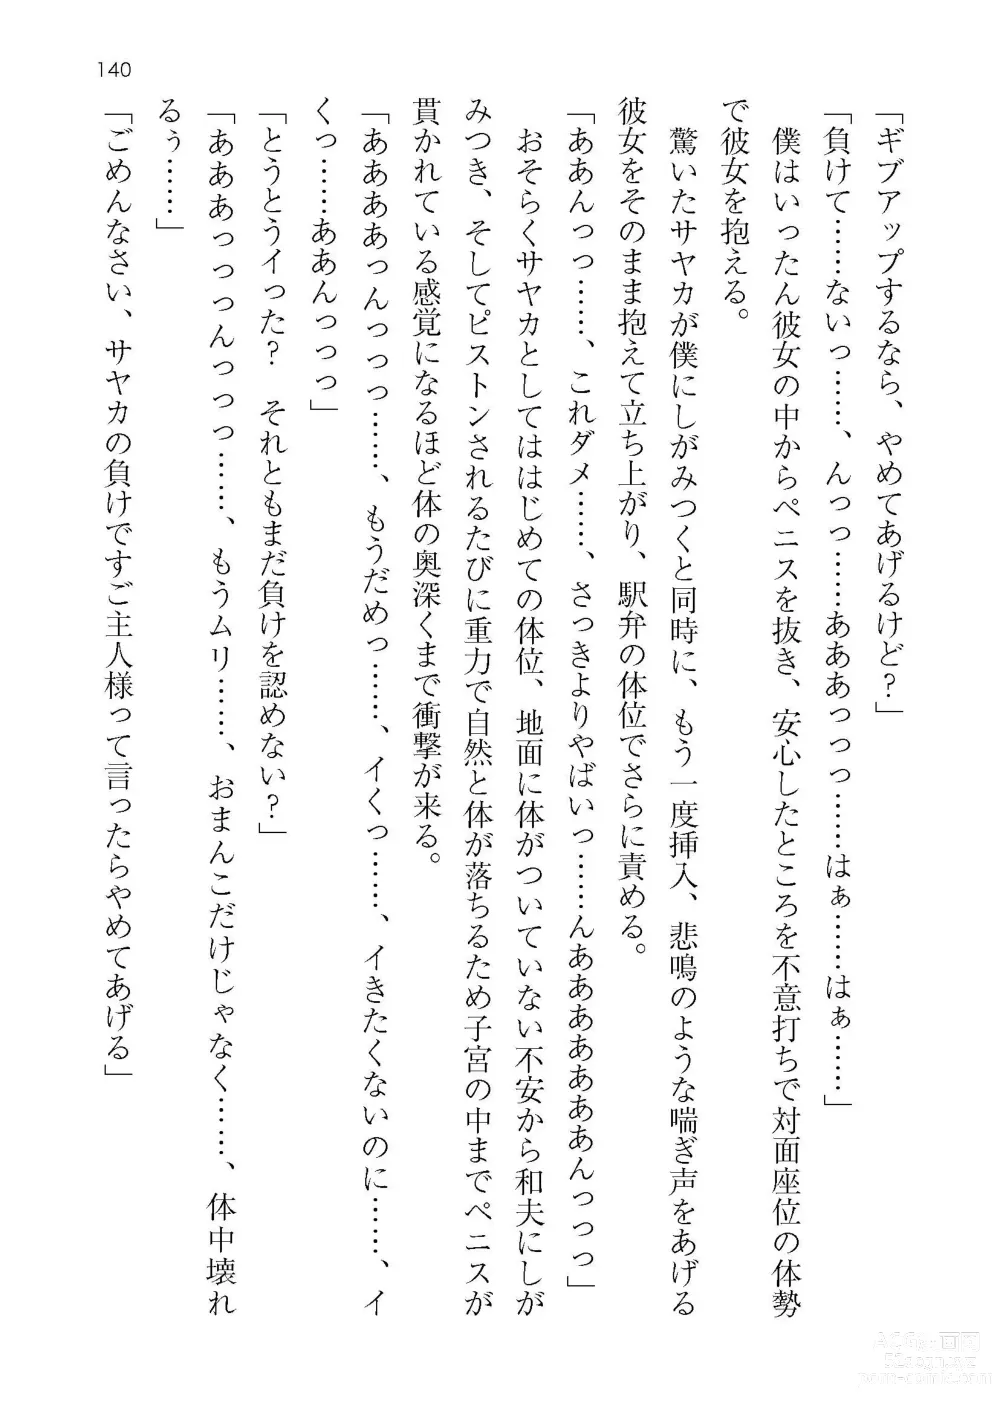 140
「ギブアップするなら、やめてあげるけど?」
「負けて……ないっ……、んっっ……あああっっっ……はぁ……はぁ……」
僕はいったん彼女の中からペニスを抜き、安心したところを不意打ちで対面座位の体勢
で彼女を抱える。
驚いたサヤカが僕にしがみつくと同時に、もう一度挿入、悲鳴のような喘ぎ声をあげる
彼女をそのまま抱えて立ち上がり、駅弁の体位でさらに責める。
「ああんっっ……、これダメ……、さっきよりやばいっ……んああああああんっっっ」
おそらくサヤカとしてははじめての体位、地面に体がついていない不安から和夫にしが
みつき、そしてピストンされるたびに重力で自然と体が落ちるため子宮の中までペニスが
貫かれている感覚になるほど体の奥深くまで衝撃が来る。
「ああああっんっっっ……、もうだめっ……、イくっ……、イきたくないのに……、イ
くっ……ああんっっっ」
「とうとうイった? それともまだ負けを認めない?」
「あああっっっんっっっ……、もうムリ……、おまんこだけじゃなく……、体中壊れ
るぅ……」
「ごめんなさい、サヤカの負けですご主人様って言ったらやめてあげる」